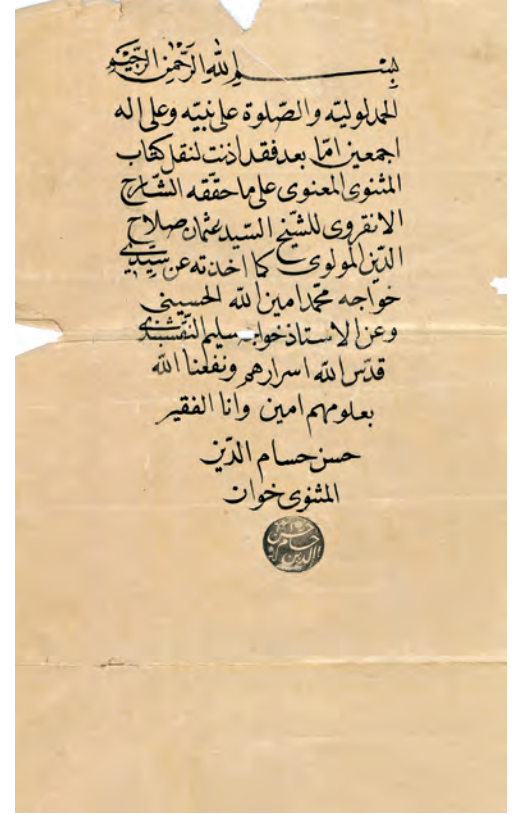 بسم الله الرحمن الرحيم
الحمد لوليّه والصّلوة على نبيّه وعلى اله
اجمعين امّا بعد فقد اذنت لنقل كتاب
المثنوى المعنوى على ما حقّقه الشّارح
الانقروى للشّيخ السّيد عثمان صلاح
الدّين المولوى كما اخذته عن سيّدى
خواجه محمّد امين الله الحسينى
وعن الاستاذ خواجه سليم النّقشبندى
قدّس الله اسرارهم ونفعنا الله
بعلومهم امين وانا الفقير
حسن حسام الدّين
المثنوى خوان
حسن
حسام
الدين